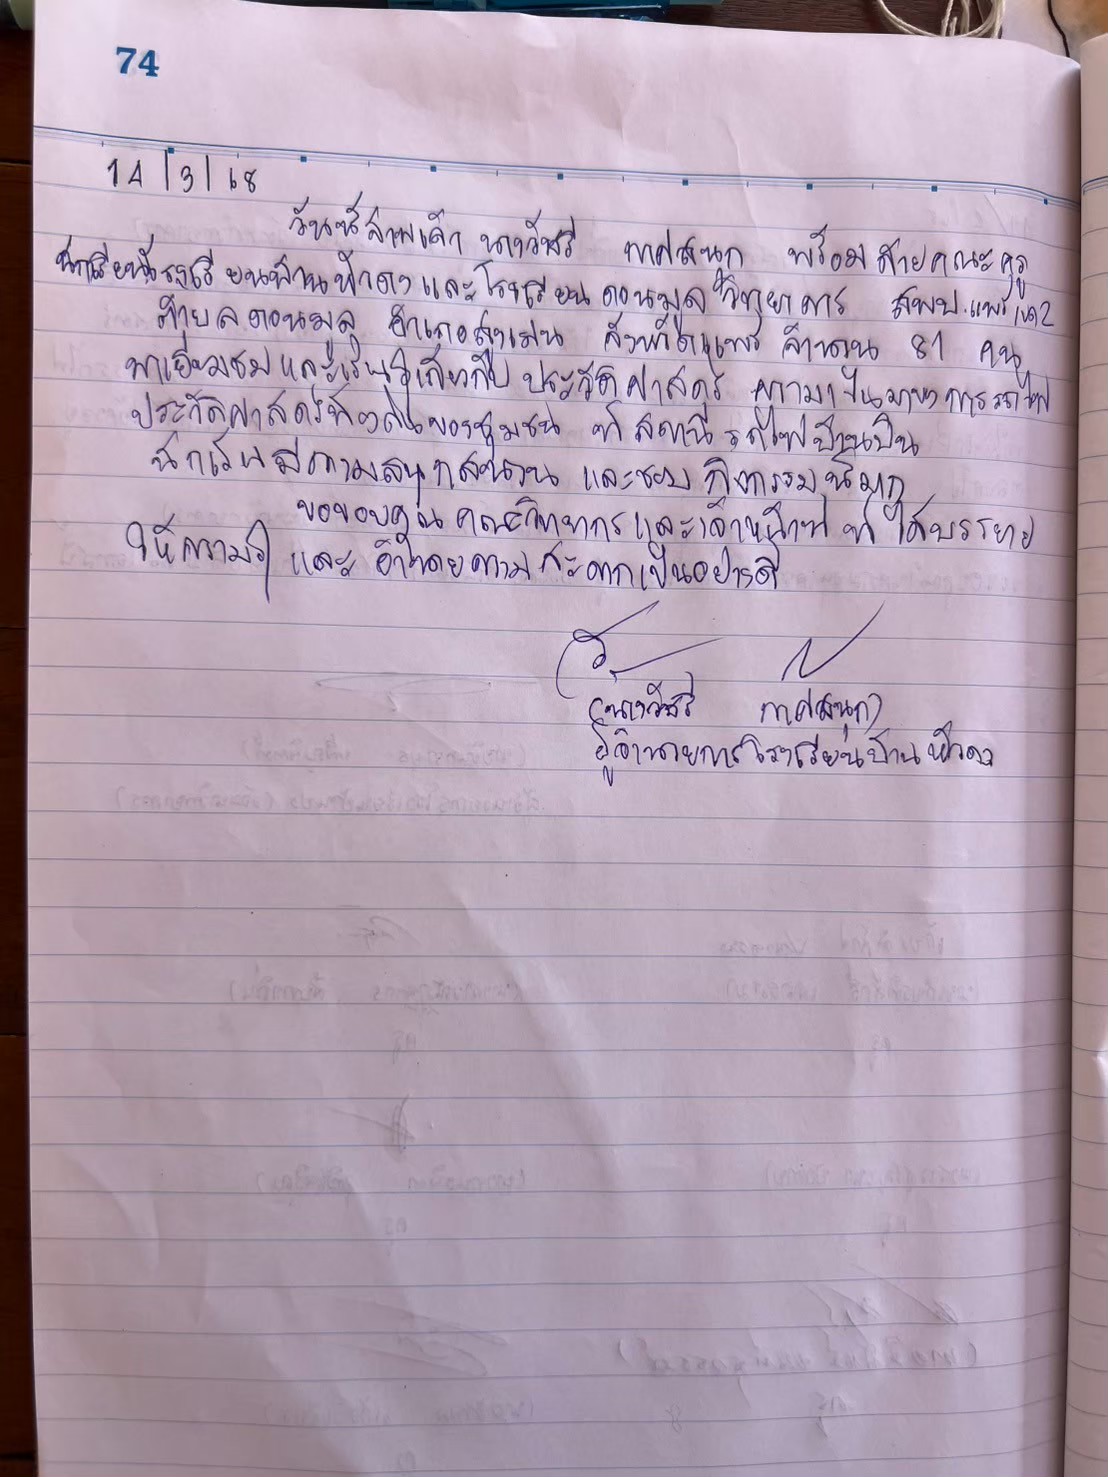 74
14/3/68
วันนี้ข้าพเจ้า นางวัชรี กาศสนุก พร้อมด้วยคณะครู
นักเรียนโรงเรียนบ้านหัวดงและโรงเรียนดอนมูลวิทยาคาร สพป.แพร่ เขต 2
ตำบลดอนมูล อำเภอสูงเม่น จังหวัดแพร่ จำนวน 81 คน
มาเยี่ยมชมและเรียนรู้เกี่ยวกับ ประวัติศาสตร์ ความเป็นมาของการรถไฟ
ประวัติศาสตร์ท้องถิ่นของชุมชน ที่สถานีรถไฟบ้านปิน
นักเรียนมีความสนุกสนาน และชอบกิจกรรมนี้มาก
ขอขอบคุณ คณะวิทยากรและเจ้าหน้าที่ ที่ได้บรรยาย
ให้ความรู้ และอำนวยความสะดวกเป็นอย่างดี
(นางวัชรี กาศสนุก)
ผู้อำนวยการโรงเรียนบ้านหัวดง